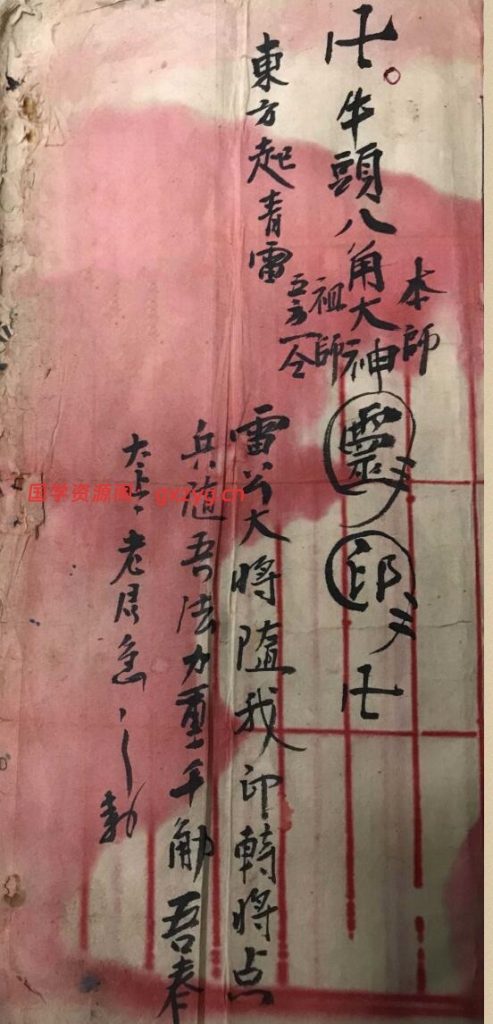 卍牛頭八角大神
本師
祖師
五方一仝
印
卍
東方起青雷
雷公大將隨我印轉將点
兵隨吾法力重千觔吾奉
太上老君急〻
勅
国学资源网：gxzyg.cn